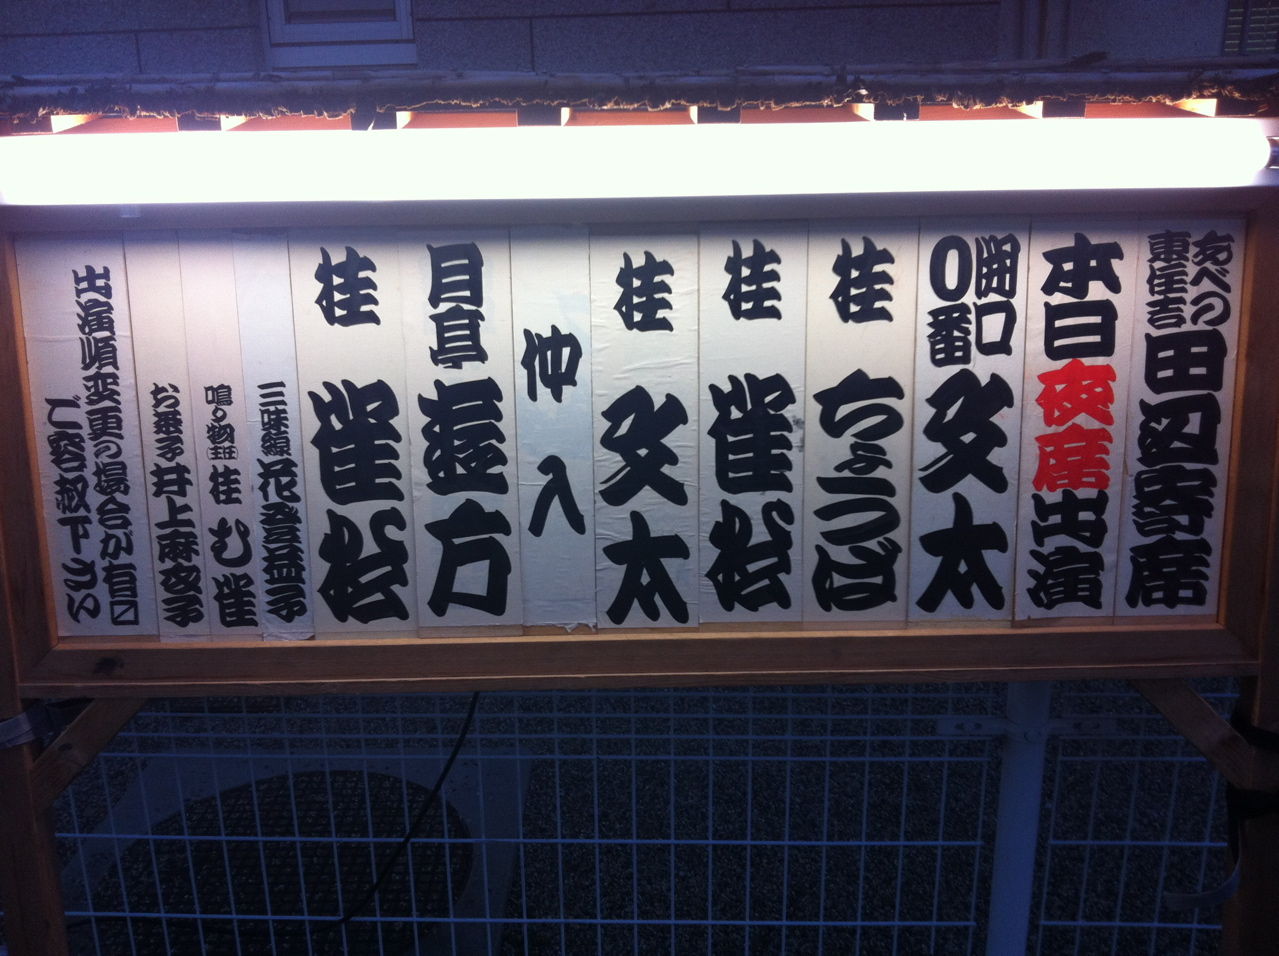 あべの
東住吉
田辺寄席
本日夜席出演
開口
0番
文太
桂 ちょうば
桂 雀松
桂 文太
仲入
月亭 遊方
桂 雀松
三味線 花登益子
鳴り物 桂 む雀
お茶子 井上麻衣子
出演順変更の場合が有□
ご容赦下さい